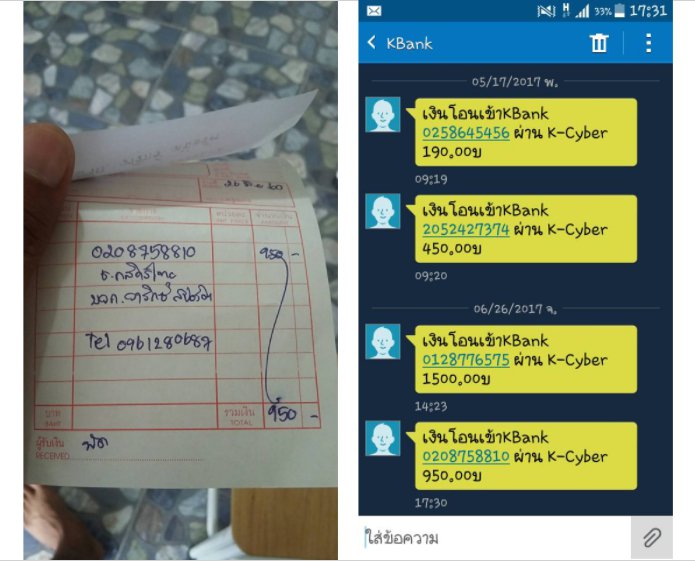 0208758810 950 -
ธ.กสิกรไทย
บจก.
Tel 0961280687
บาท
BAHT
รวมเงิน
TOTAL
950 -
ผู้รับเงิน
RECEIVED
33% 17:31
KBank
05/17/2017 พ.
เงินโอนเข้าKBank
0258645456 ผ่าน K-Cyber
190.00บ
09:19
เงินโอนเข้าKBank
2052427374 ผ่าน K-Cyber
450.00บ
09:20
06/26/2017 จ.
เงินโอนเข้าKBank
0128776575 ผ่าน K-Cyber
1500.00บ
14:23
เงินโอนเข้าKBank
0208758810 ผ่าน K-Cyber
950.00บ
17:30
ใส่ข้อความ